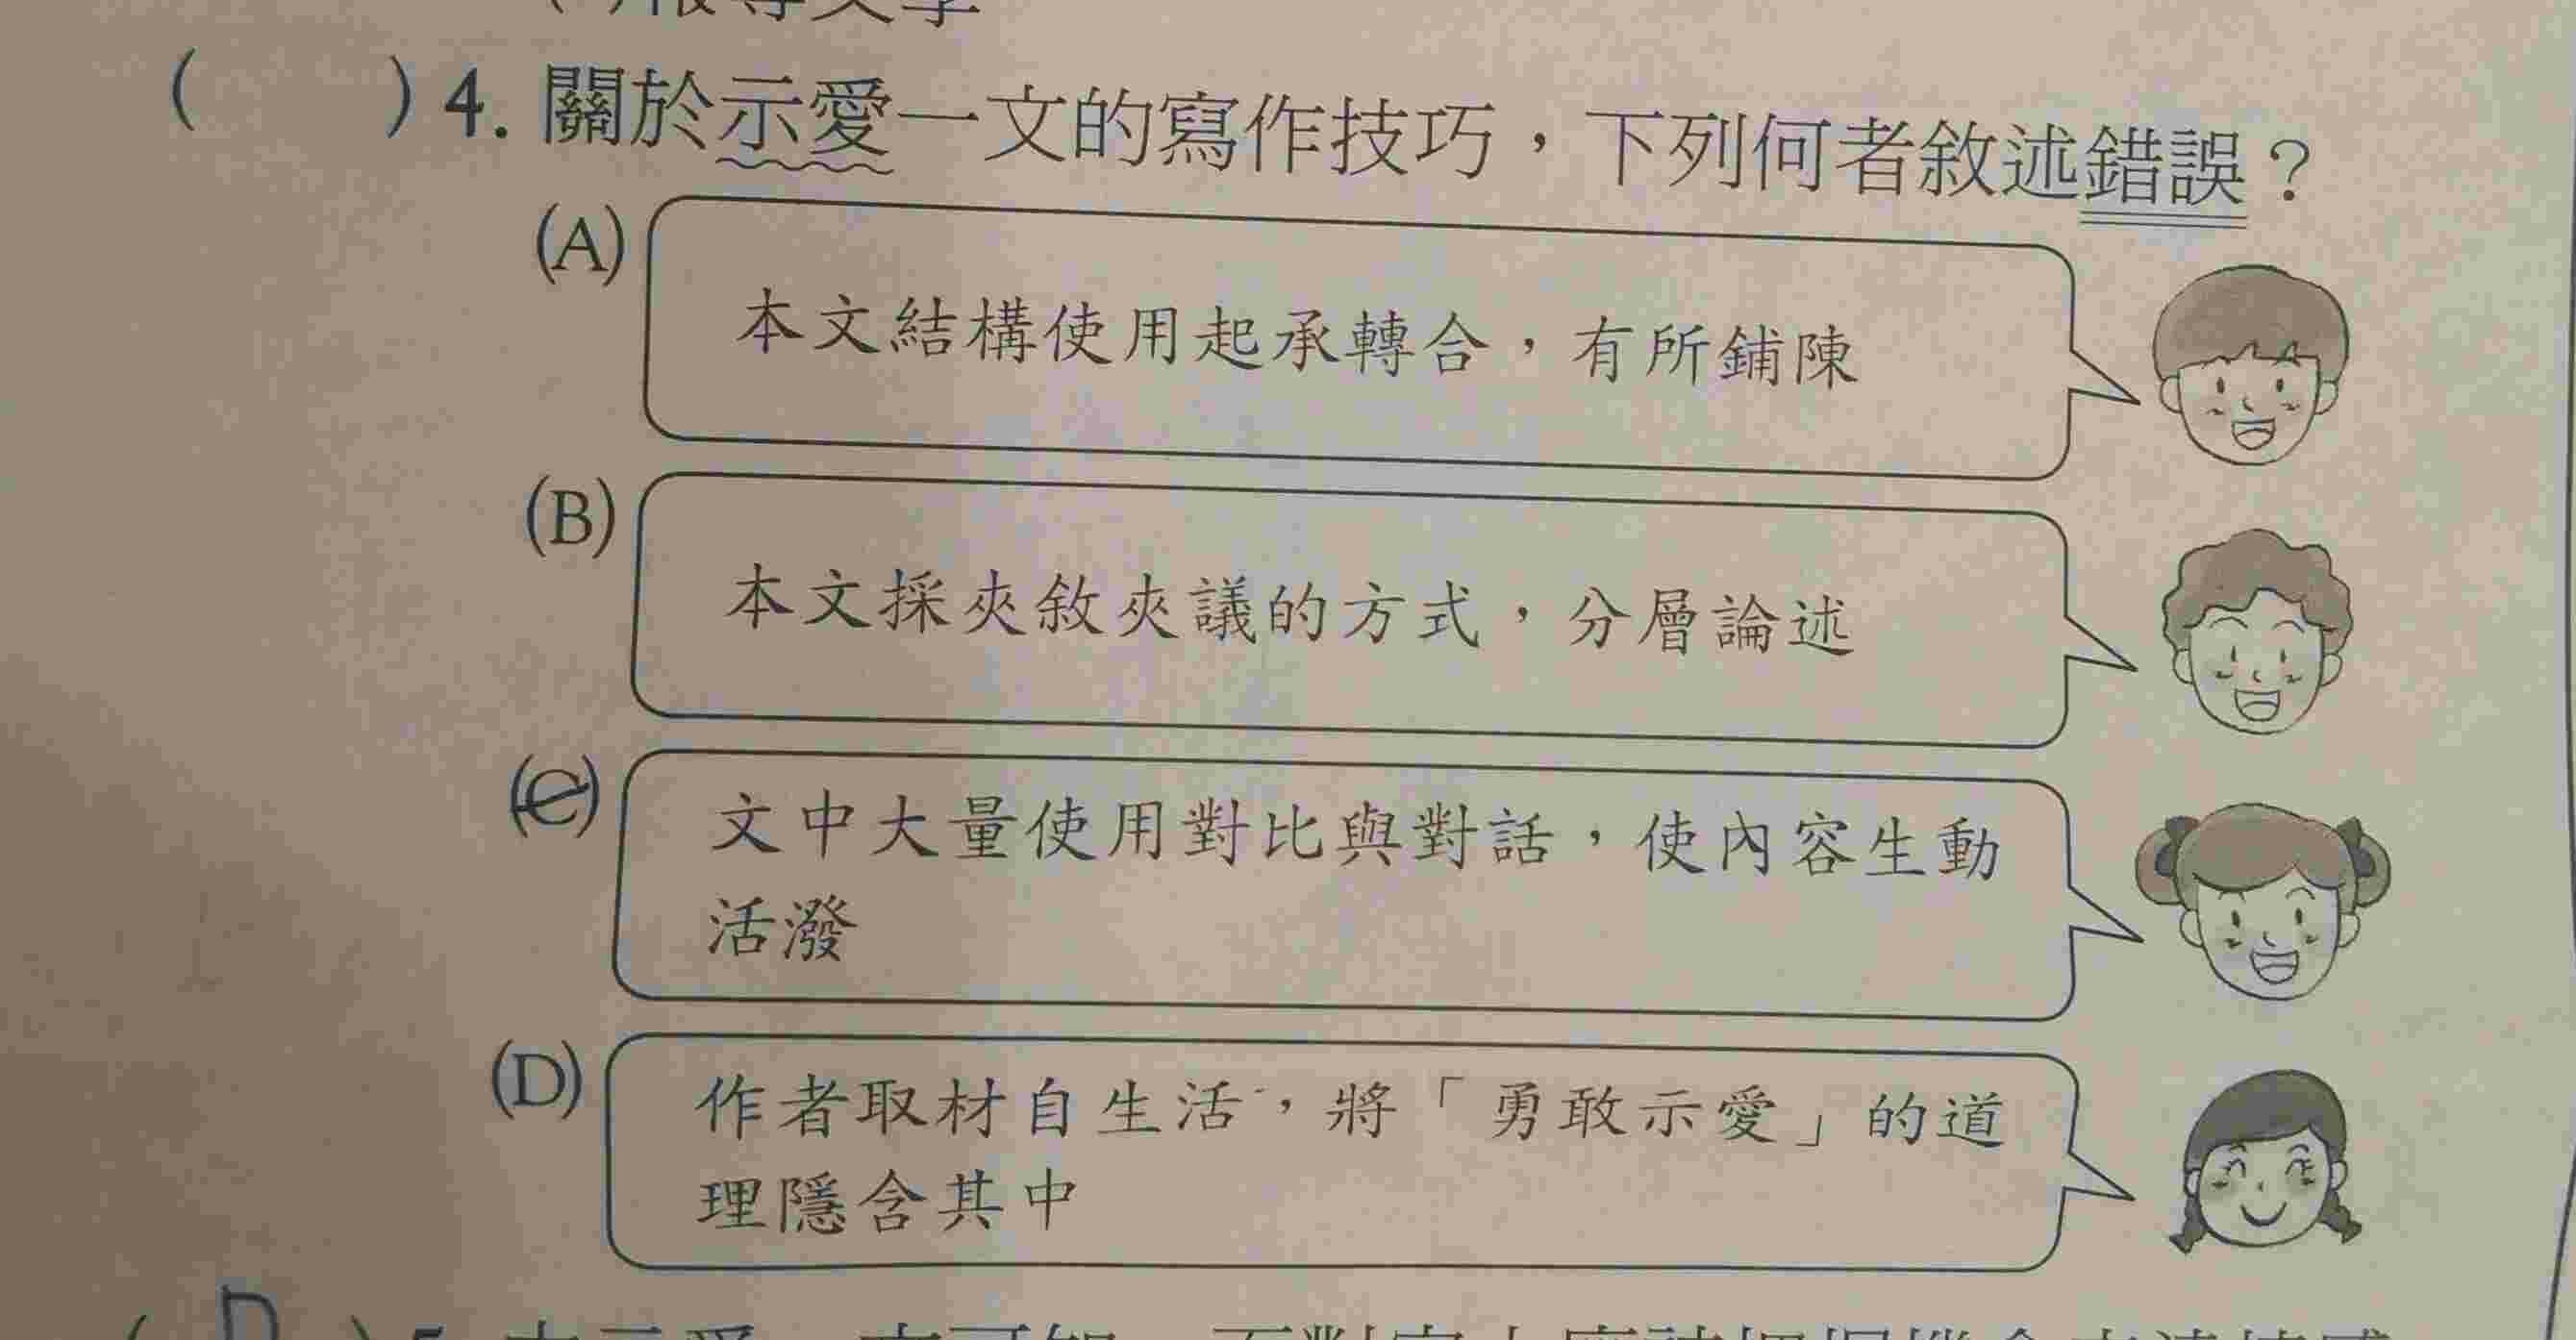 ( )4. 關於示愛一文的寫作技巧，下列何者敘述錯誤？
(A) 本文結構使用起承轉合，有所鋪陳
(B) 本文採夾敘夾議的方式，分層論述
(C) 文中大量使用對比與對話，使內容生動
活潑
(D) 作者取材自生活，將「勇敢示愛」的道
理隱含其中